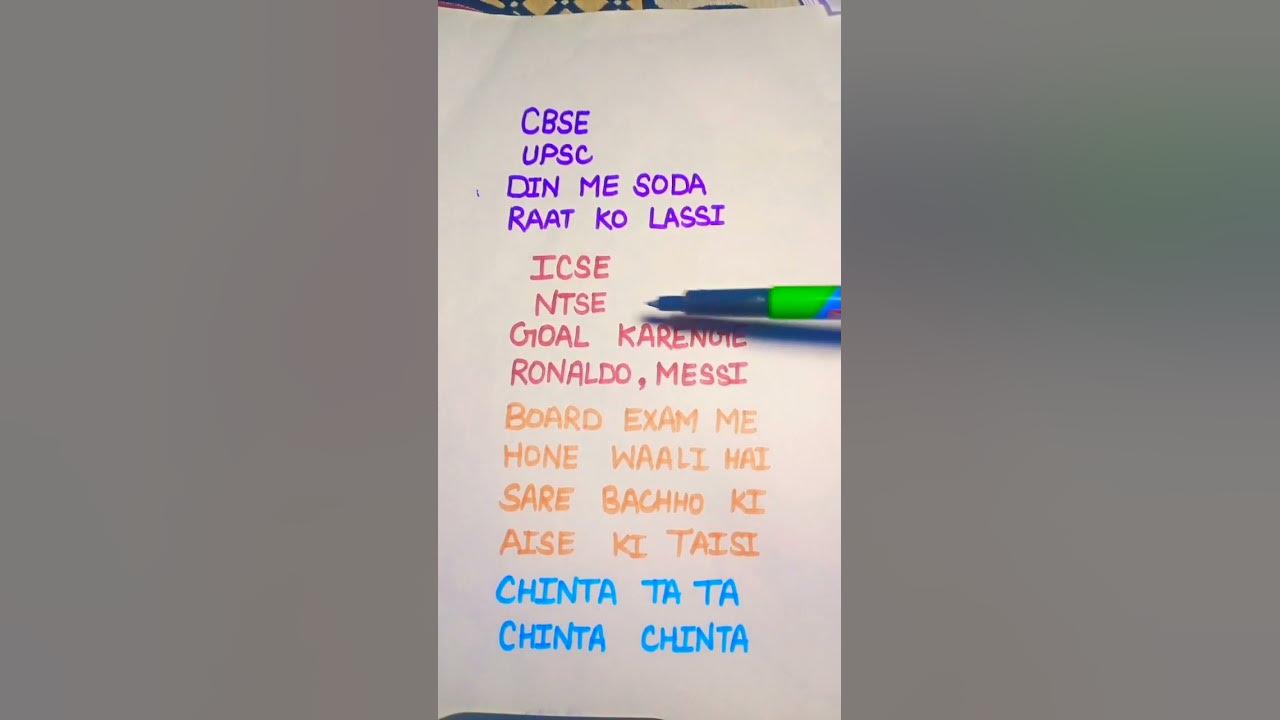 CBSE
UPSC
DIN ME SODA
RAAT KO LASSI
ICSE
NTSE
GOAL KARENGE
RONALDO, MESSI
BOARD EXAM ME
HONE WAALI HAI
SARE BACHHO KI
AISE KI TAISI
CHINTA TA TA
CHINTA CHINTA